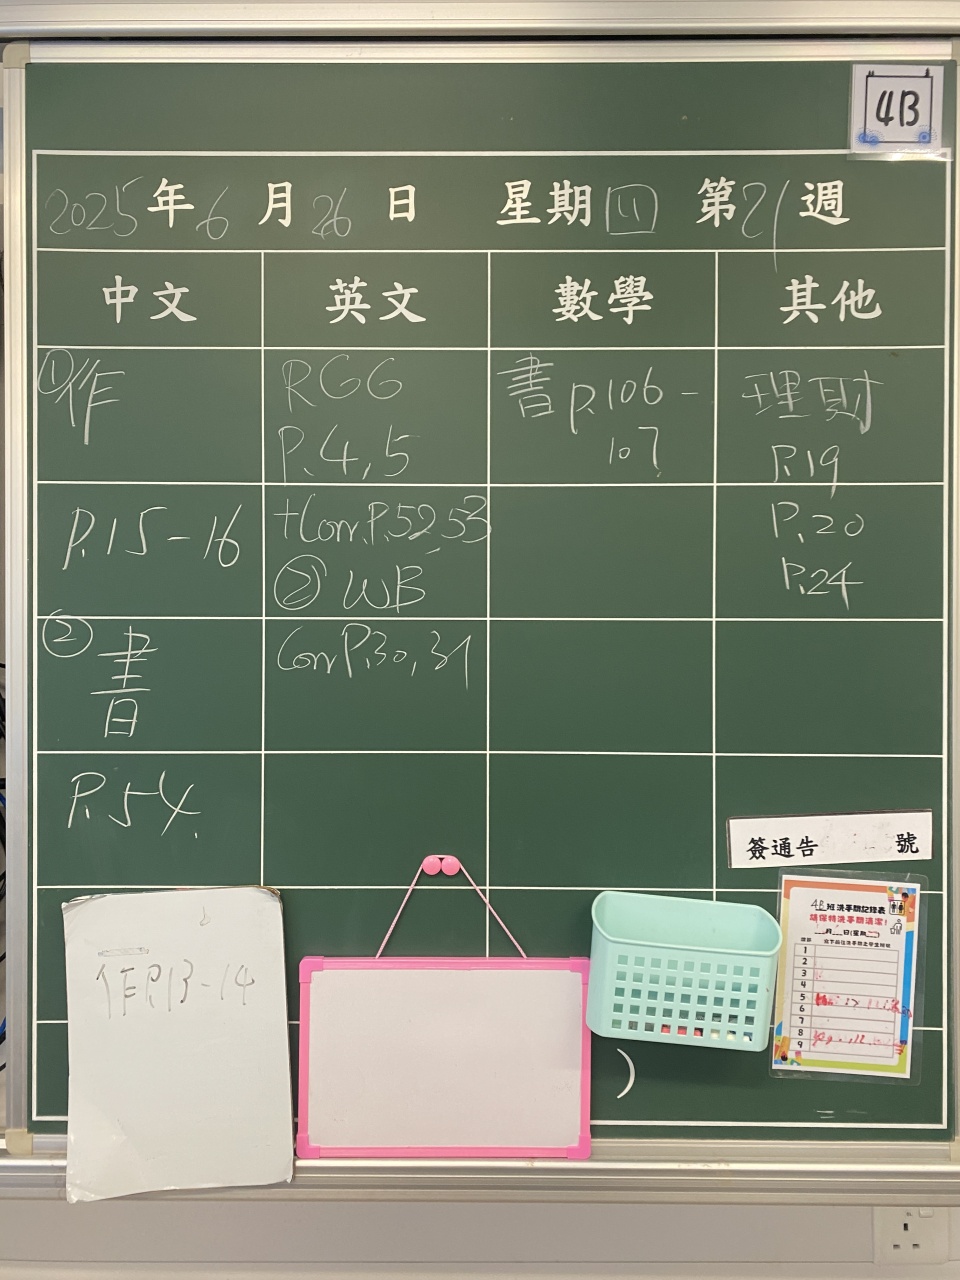 4B
2025年6月26日 星期四 第21週
中文 英文 數學 其他
①作
P.15-16
②書
P.54
RGG
P.4,5
+Corr.P.52,53
② WB
Corr P.30,31
書 P.106-
107
理財
P.19
P.20
P.24
簽通告 號
作P.13-14
4B班洗手間記錄表
請保持洗手間清潔!
月 日(星期 )
1
2
3
4
5
6
7
8
9